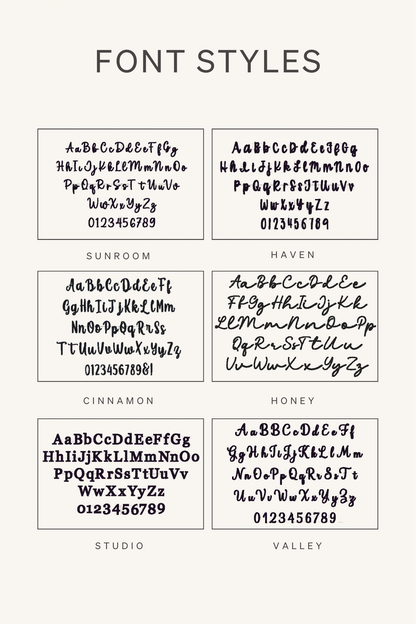 FONT STYLES
AaBbCcDdEeFfGg
HhIiJjKkLlMmNnOo
PpQqRrSsTtUuVv
WwXxYyZz
0123456789
SUNROOM
AaBbCcDdEeFfGg
HhIiJjKkLlMmNnOo
PpQqRrSsTtUuVv
WwXxYyZz
0123456789
HAVEN
AaBbCcDdEeFf
GgHhIiJjKkLlMm
NnOoPpQqRrSs
TtUuVvWwXxYyZz
0123456789&!
CINNAMON
AaBbCcDdEe
FfGgHhIiJjKk
LlMmNnOoPp
QqRrSsTtUu
VvWwXxYyZz
HONEY
AaBbCcDdEeFfGg
HhIiJjKkLlMmNnOo
PpQqRrSsTtUuVv
WwXxYyZz
0123456789
STUDIO
AaBBCcDdEeFf
GgHhIiJjKkLlMm
NnOoPpQqRrSsTt
UuVvWwXxYyZz
0123456789
VALLEY